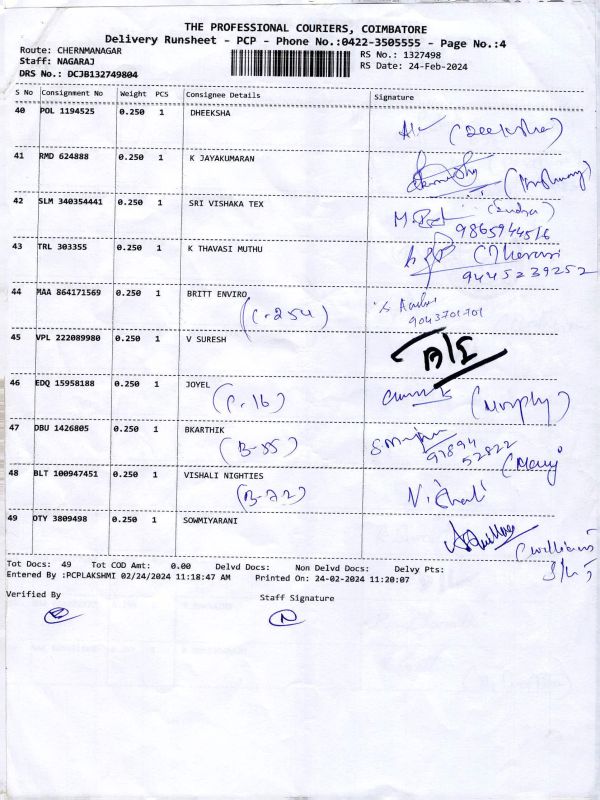 THE PROFESSIONAL COURIERS, COIMBATORE
Delivery Runsheet - PCP - Phone No.:0422-3505555 - Page No.:4
Route: CHERNMANAGAR
RS No.: 1327498
Staff: NAGARAJ
RS Date: 24-Feb-2024
DRS No.: DCJB132749804
S No Consignment No Weight PCS Consignee Details Signature
40 POL 1194525 0.250 1 DHEEKSHA
(Deeksha)
41 RMD 624888 0.250 1 K JAYAKUMARAN
42 SLM 340354441 0.250 1 SRI VISHAKA TEX
9865944516
43 TRL 303355 0.250 1 K THAVASI MUTHU
9445239252
44 MAA 864171569 0.250 1 BRITT ENVIRO
(C-254)
9043701701
45 VPL 222089980 0.250 1 V SURESH
46 EDQ 15958188 0.250 1 JOYEL
(P-16) (Murphy)
47 DBU 1426805 0.250 1 BKARTHIK
(B-55) 97894
52822
48 BLT 100947451 0.250 1 VISHALI NIGHTIES
(B-22) V.ishali
49 OTY 3809498 0.250 1 SOWMIYARANI
(williams
Tot Docs: 49 Tot COD Amt: 0.00 Delvd Docs: Non Delvd Docs: Delvy Pts:
Entered By :PCPLAKSHMI 02/24/2024 11:18:47 AM Printed On: 24-02-2024 11:20:07
Verified By Staff Signature
N